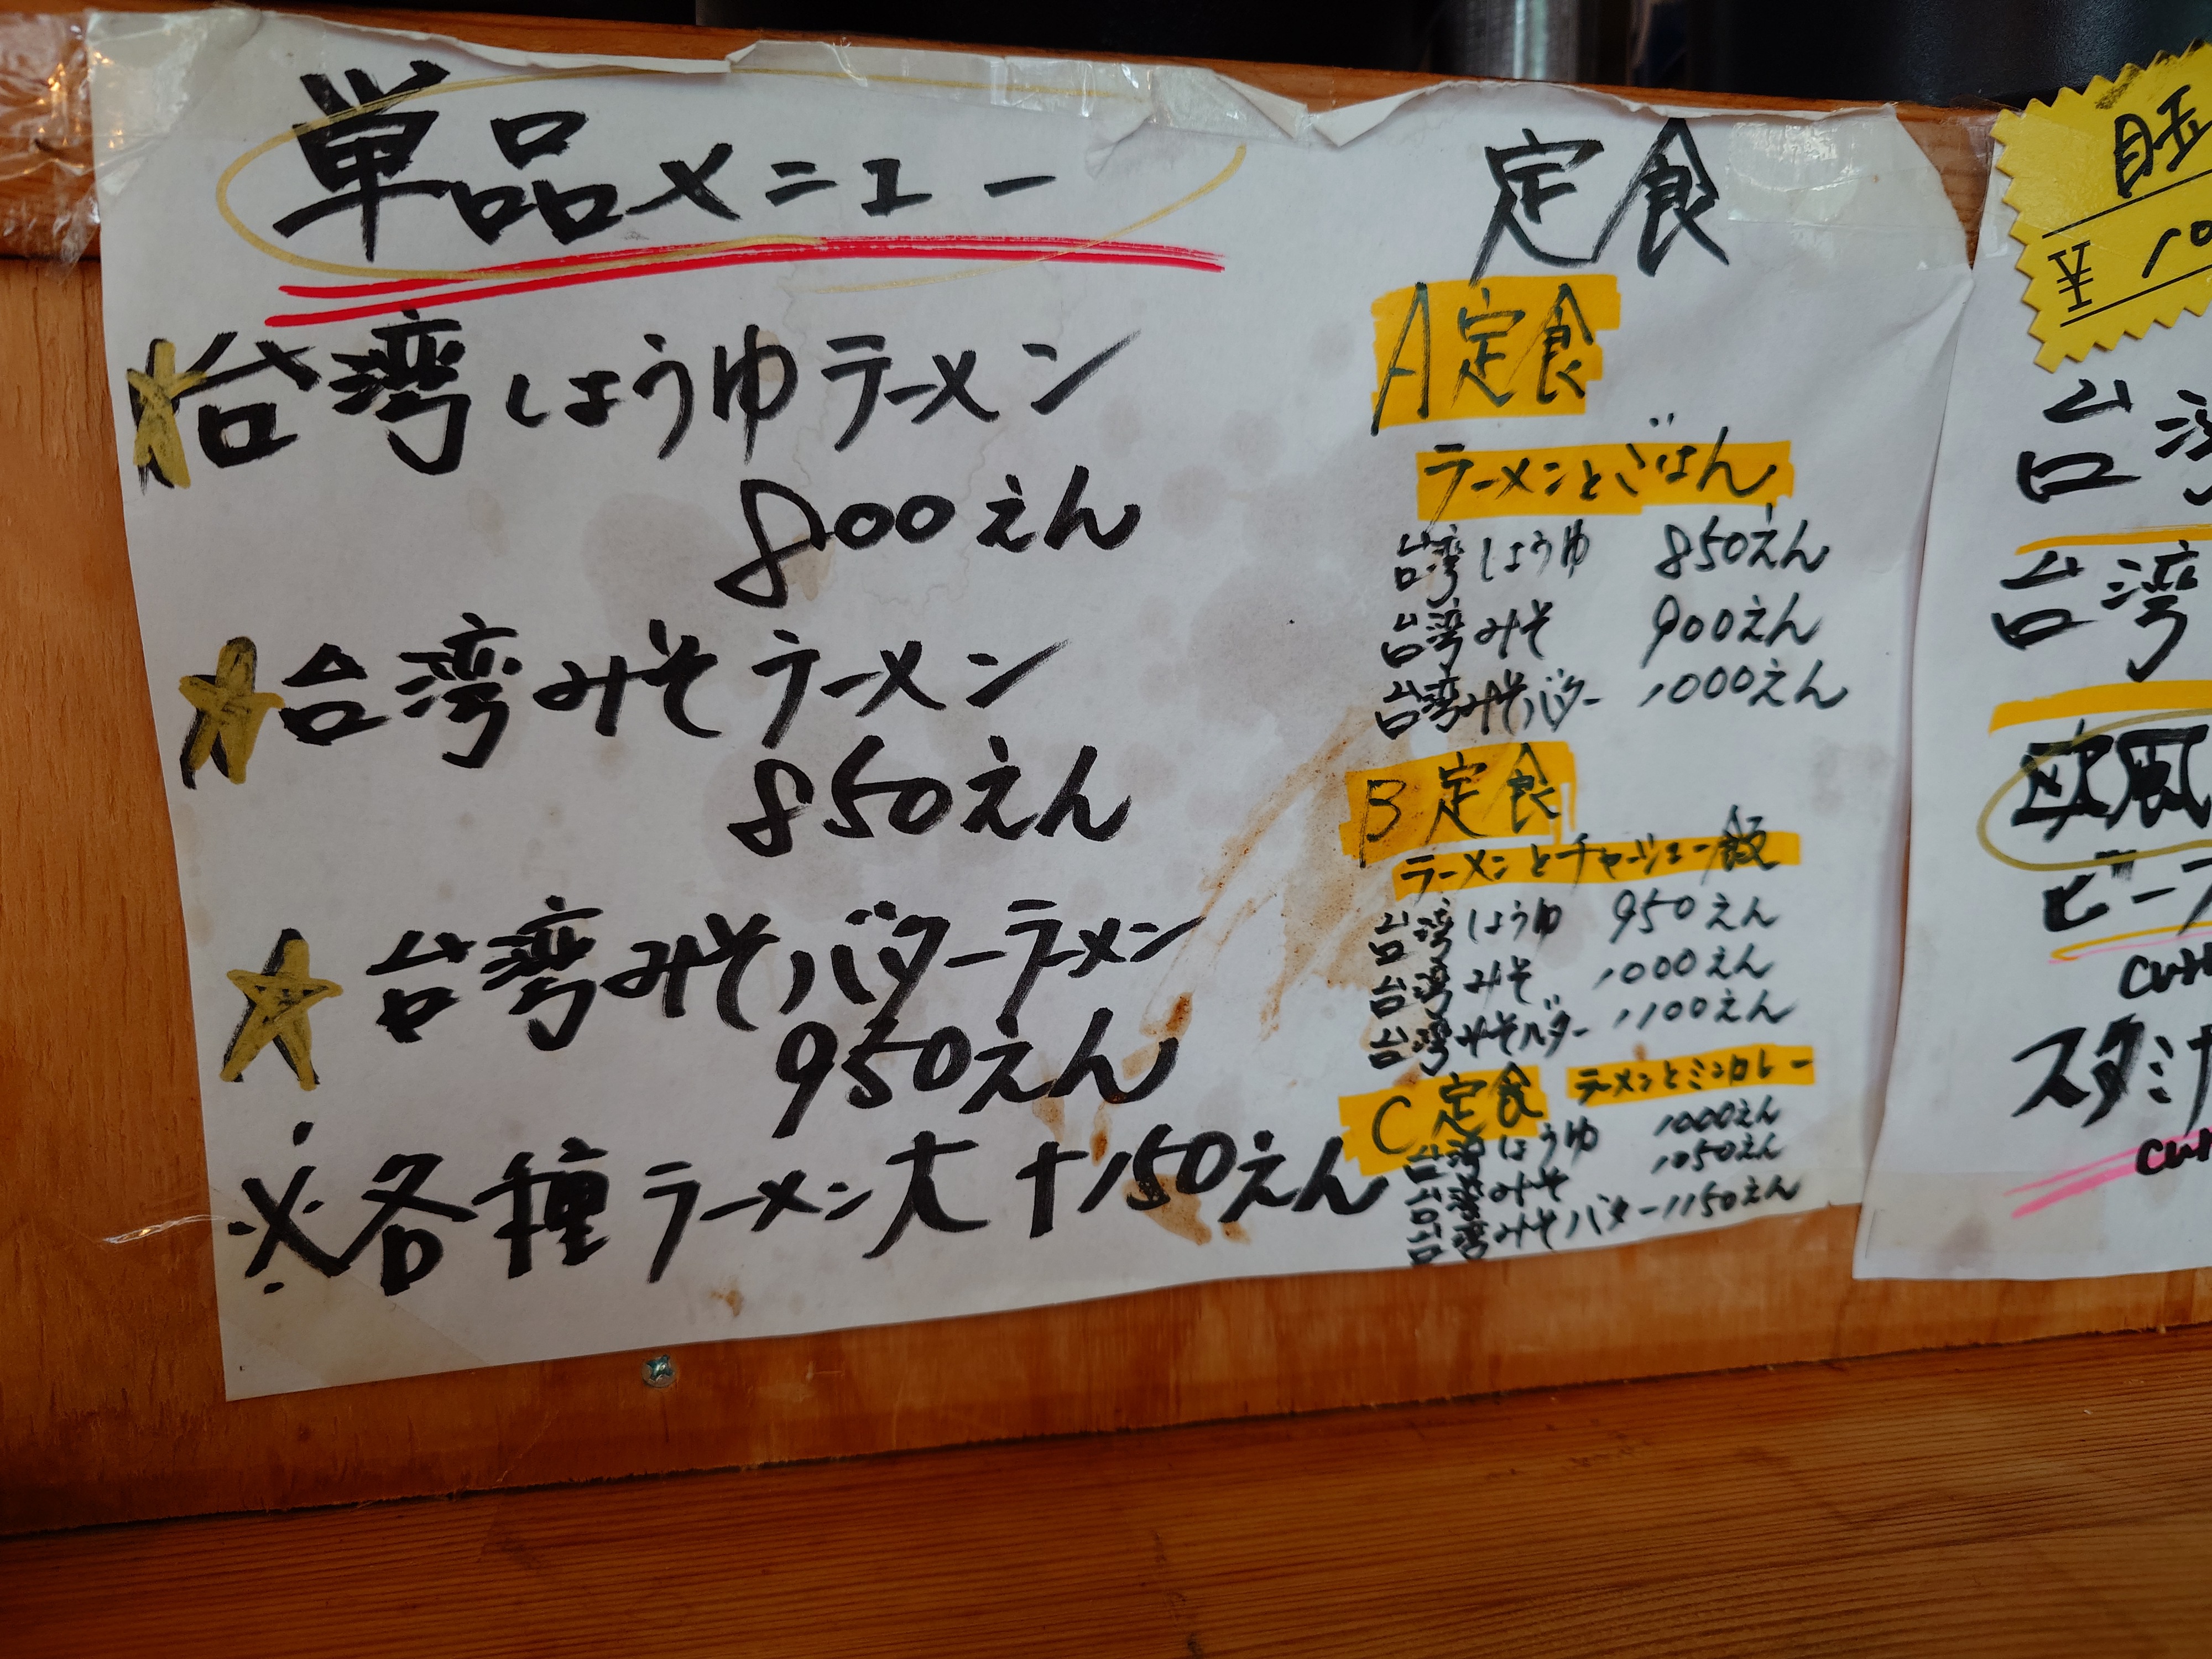 単品メニュー
台湾しょうゆラーメン
800えん
台湾みそラーメン
850えん
台湾みそバターラーメン
950えん
※各種ラーメン大+150えん
定食
A定食
ラーメンとごはん
台湾しょうゆ 850えん
台湾みそ 900えん
台湾みそバター 1000えん
B定食
ラーメンとチャーシュー飯
台湾しょうゆ 950えん
台湾みそ 1000えん
台湾みそバター 1100えん
C定食 ラーメンとミニカレー
台湾しょうゆ 1000えん
台湾みそ 1050えん
台湾みそバター 1150えん
¥
台湾
台湾
欧風
ビーフ
スタミナ